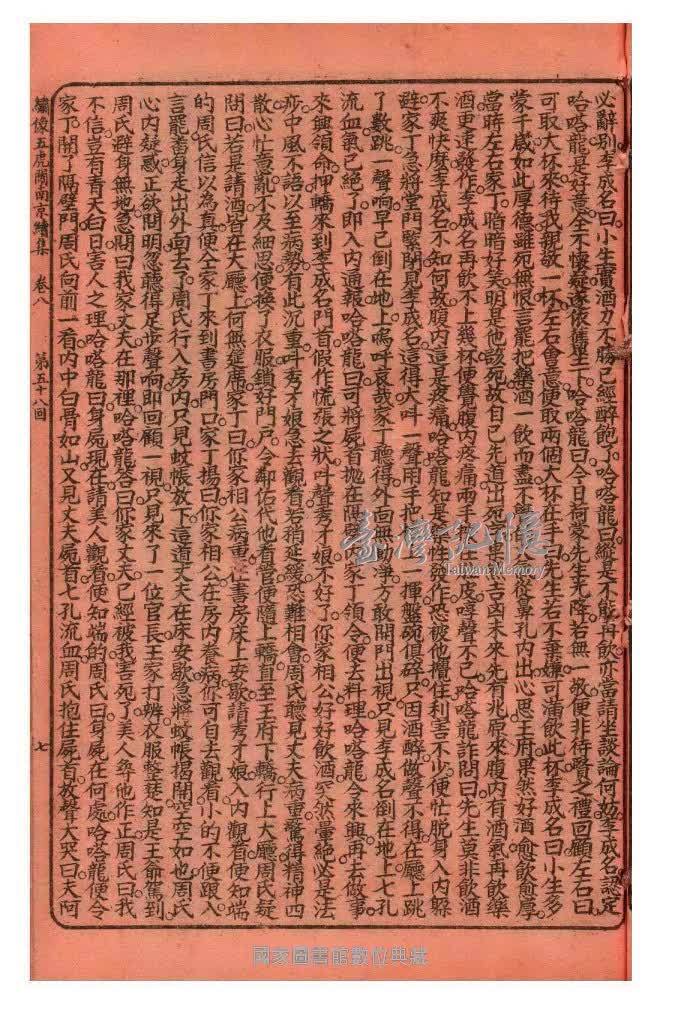 必辭別李成名曰小生實酒力不勝已經醉飽了哈嗒龍曰縱是不能再飲亦當請坐談論何妨李成名認定
哈嗒龍是好意全不懷疑遂依舊坐下哈嗒龍曰今日何蒙先生光降若無一敬便非待賢之禮回顧左右曰
可取大杯來待我親敬一杯左右會意便取兩個大杯在手曰先生若不棄嫌可滿飲此杯李成名曰小生多
蒙千歲如此厚德雖死無恨言罷把藥酒一飲而盡不覺從鼻孔內出心思王府果然好酒愈飲愈厚
當時左右家丁暗暗好笑明是他該死故自己先道出死字果是吉凶未來先有兆原來腹內有酒氣再飲藥
酒更速發作李成名再飲不上幾杯便覺腹內疼痛兩手皮哼聲不已哈嗒龍詐問曰先生莫非飲酒
不爽快麼李成名不知如何故腹內這是疼痛哈嗒龍知是藥性發作恐被他攬住利害不少便忙脫身入內躲
避家丁急將堂門緊閉見李成名這得大叫一聲兩手把揮盤碗俱碎只因酒醉做聲不得在廳上跳
了數跳一聲响早已倒在地上嗚呼哀哉家丁聽得外面無聲方敢開門出視只見李成名倒在地上七孔
流血氣已絕了即入內通報哈嗒龍曰可將屍首拋在隔壁內家丁領令便去料理哈嗒龍令來興再去做事
來興領命押轎來到李成名門首假作慌張之狀叫聲秀才娘不好了你家相公好好飲酒突然暈絕必是法
亦中風不語以至病勢有此沉重叫秀才娘急去觀看若稍延緩恐難相會周氏聽見丈夫病重驚得精神四
散心忙意亂不及細思便換了衣服鎖好門戶令鄰佑代他看管便隨上轎直至王府下轎行上大廳周氏疑
問曰若是請酒皆在大廳上何無筵席家丁曰你家相公病重在書房床上安歇請秀才娘入內觀看便知端
的周氏信以為真便令家丁來到書房門口家丁揚曰你家相公在房內養病你可自去觀看小的不便跟入
言罷善身走出外面去了周氏行入房內只見蚊帳放下這道丈夫在床安歇急將蚊帳揭開空空如也周氏
心內疑惑正欲問明忽聽得足步聲响即回顧一視只見來了一位官長王家打辨衣服整琺知是王爺駕到
周氏避身無地急問曰我家丈夫在那裡哈嗒龍答曰你家丈夫已經被我害死了美人每他作正周氏曰我
不信豈有青天白日害人之理哈嗒龍曰身屍現在請美人觀看便知端的周氏曰身屍在何處哈嗒龍便令
家丁開了隔壁門周氏向前一看內中白骨如山又見丈夫屍首七孔流血周氏抱住屍首放聲大哭曰夫阿
繡像五虎鬧南京續集 卷八 第五十八回 七
臺灣記憶
Taiwan Memory
國家圖書館數位典藏